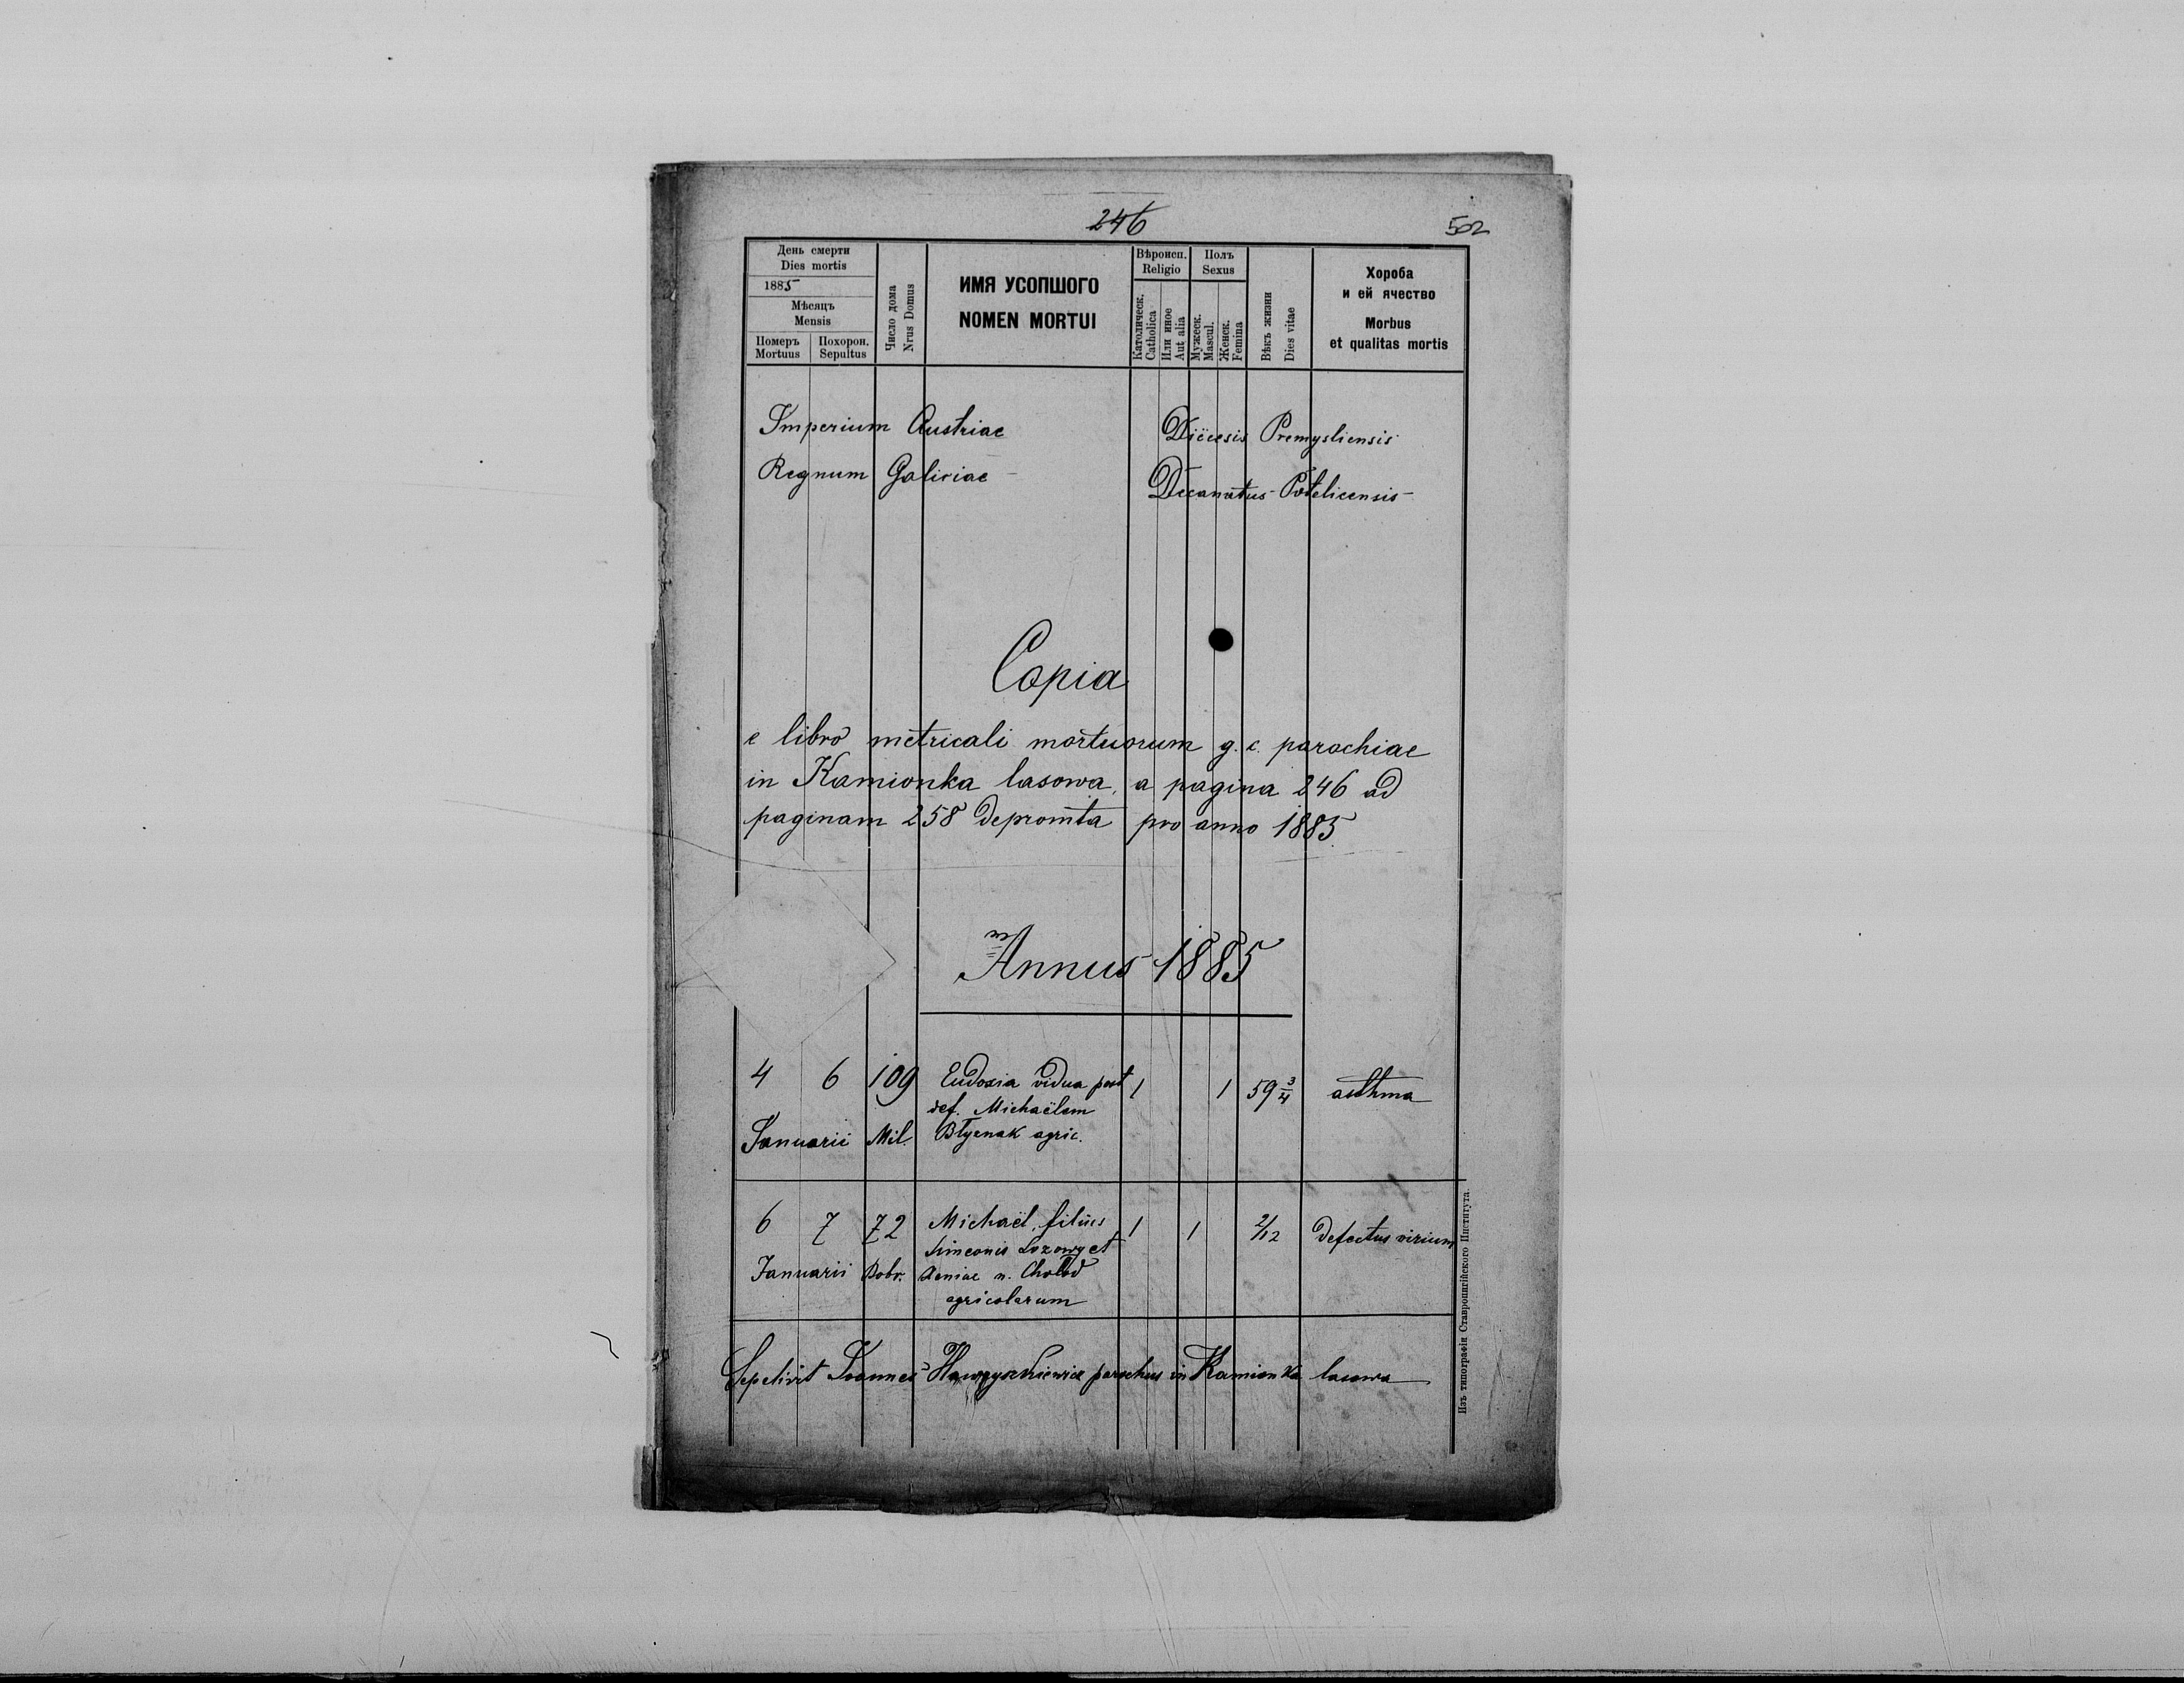 246
502
День смерти
Dies mortis
1885
Мѣсяцъ
Mensis
Померъ
Mortuus
Похорон.
Sepultus
Число дома
Nrus Domus
ИМЯ УСОПШОГО
NOMEN MORTUI
Вѣроисп.
Religio
Католическ.
Catholica
Или иное
Aut alia
Полъ
Sexus
Мужеск.
Mascul.
Женск.
Femina
Вѣкъ жизни
Dies vitae
Хороба
и ей ячество
Morbus
et qualitas mortis
Imperium Austriae Diöcesis Premysliensis
Regnum Galiciae Decanatus Potelicensis
Copia
e libro metricali mortuorum g. c. parochiae
in Kamionka lasowa, a pagina 246 ad
paginam 258 depromta pro anno 1885.
Annus 1885
4 6 109 Eudoxia vidua post 1 1 59 3/4 asthma
def. Michaëlem
Januarii Mil. Błyznak agric.
6 7 72 Michaël, filius 1 1 2/12 defectus virium
Simeonis Lozowy et
Januarii Bobr. Xeniae n. Chołod
agricolarum
Sepelivit Joannes parochus in Kamionka lasowa
Изъ типографіи Ставропигійского Института.